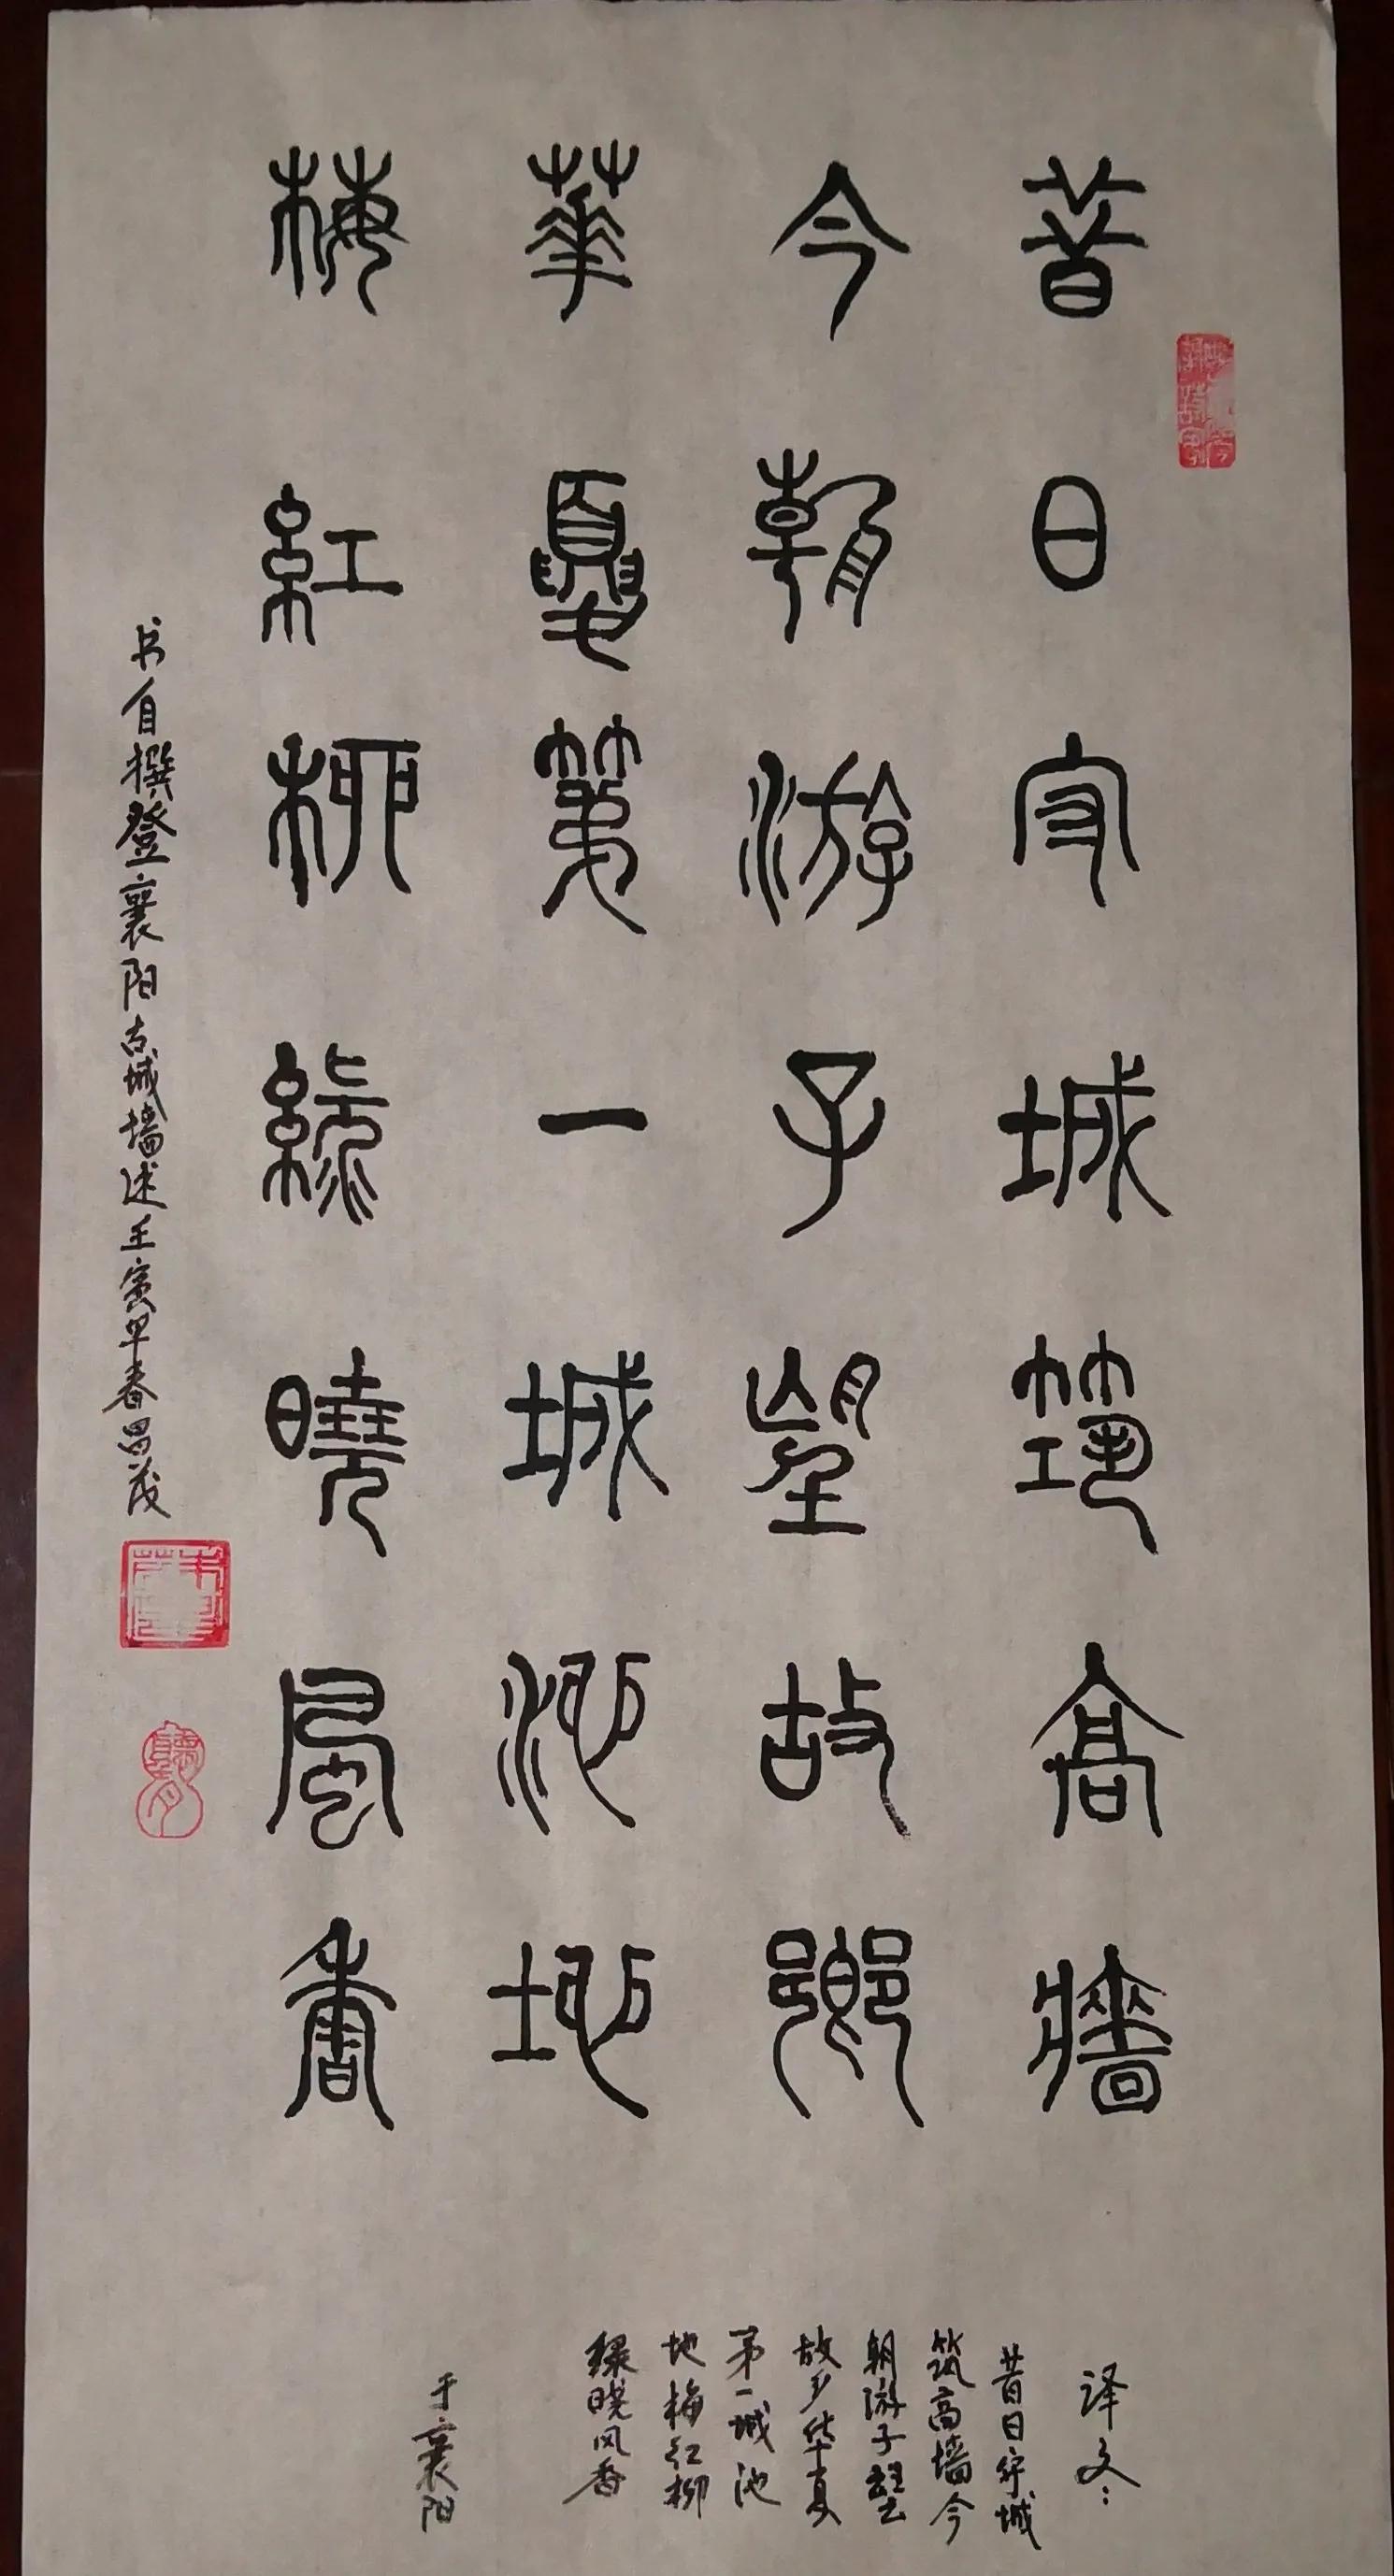 昔日守城筑高牆
今朝游子望故鄉
華夏第一城池地
梅紅柳綠曉風香
书自撰登襄阳古城墙述壬寅早春昌茂
译文：
昔日守城
筑高墙今
朝游子望
故乡华夏
第一城池
地梅红柳
绿晓风香
于襄阳